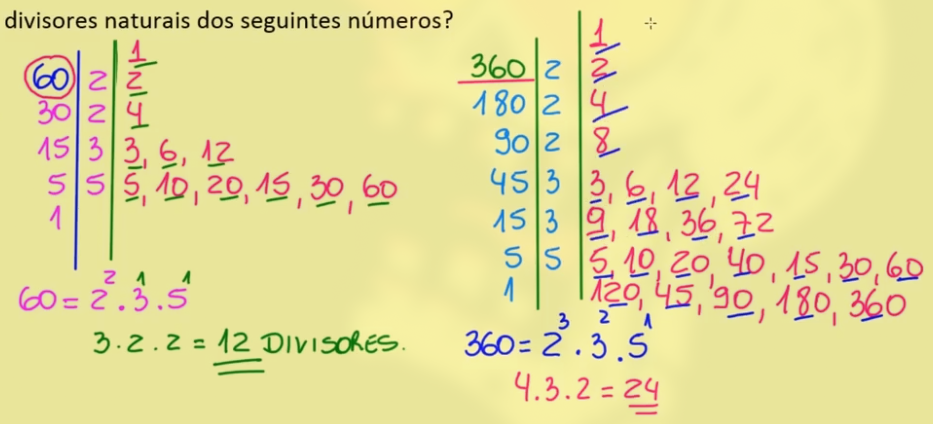 divisores naturais dos seguintes números?
1
60 2 2
30 2 4
15 3 3, 6, 12
5 5 5, 10, 20, 15, 30, 60
1
60 = 2² . 3¹ . 5¹
3 . 2 . 2 = 12 DIVISORES.
1
360 2 2
180 2 4
90 2 8
45 3 3, 6, 12, 24
15 3 9, 18, 36, 72
5 5 5, 10, 20, 40, 15, 30, 60
1 120, 45, 90, 180, 360
360 = 2³ . 3² . 5¹
4 . 3 . 2 = 24